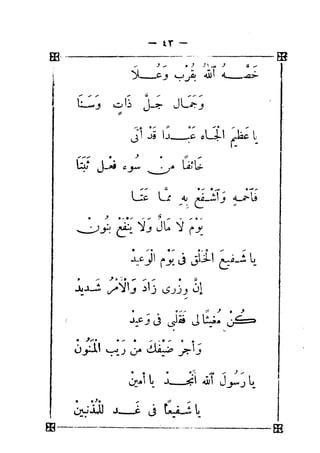 — ٤٣ —
خَصَّهُ اللهُ بِقُرْبٍ وَعُلَا
وَجَمَالٍ جَلَّ ذَاتٍ وَسَنَا
يَا عَظِيْمَ الْجَاهِ عَبْدًا قَدْ أَتَى
خَائِفًا مِنْ سُوءِ فِعْلٍ ثَبَتَا
فَاحْمِهِ وَاشْفَعْ بِهِ مِمَّا عَتَا
يَوْمَ لَا مَالٌ وَلَا يَنْفَعُ بَنُونَ
يَا شَفِيعَ الْخَلْقِ فِى يَوْمِ الْوَعِيدْ
إِنَّ وِزْرِى زَادَ وَالْأَمْرُ شَدِيدْ
كُنْ مُغِيثًا لِى فَقَلْبِى فِى وَعِيدْ
وَأَجِرْ ضَيْفَكَ مِنْ رَيْبِ الْمَنُونْ
يَا رَسُولَ اللهِ أَنْجِدْ يَا أَمِينْ
يَا شَفِيعًا فِى غَدٍ لِلْمُذْنِبِينْ